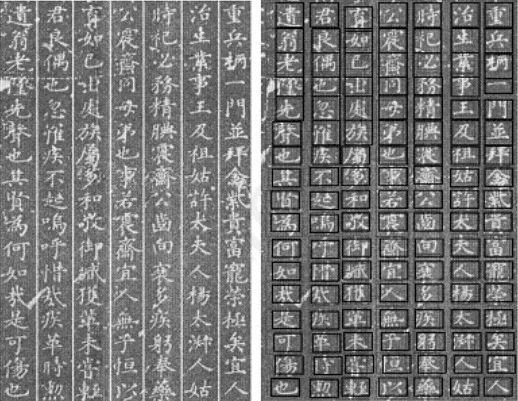 重兵柄一門並拜貴富寵榮極矣宜人
冶生業事王及祖姑許太夫人楊太淑人姑
時祀必務精腆震齋公齒向衰多疾躬奉藥
公震齋同母弟也事若震齋宜人無子恒以
育如已出處族屬多和敬御臧獲未嘗輕
君良偶也忽罹疾不起嗚呼惜哉疾革時
遺翁老先聲也其賢為何如哉是可傷也
重兵柄一門並拜貴富寵榮極矣宜人
冶生業事王及祖姑許太夫人楊太淑人姑
時祀必務精腆震齋公齒向衰多疾躬奉藥
公震齋同母弟也事若震齋宜人無子恒以
育如已出處族屬多和敬御臧獲未嘗輕
君良偶也忽罹疾不起嗚呼惜哉疾革時
遺翁老先聲也其賢為何如哉是可傷也